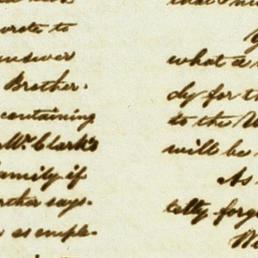 wrote to
answer
Brother.
containing
Mr. Clark's
family if
says.
what a
dy for t
to the W
will be
As
tlly forg